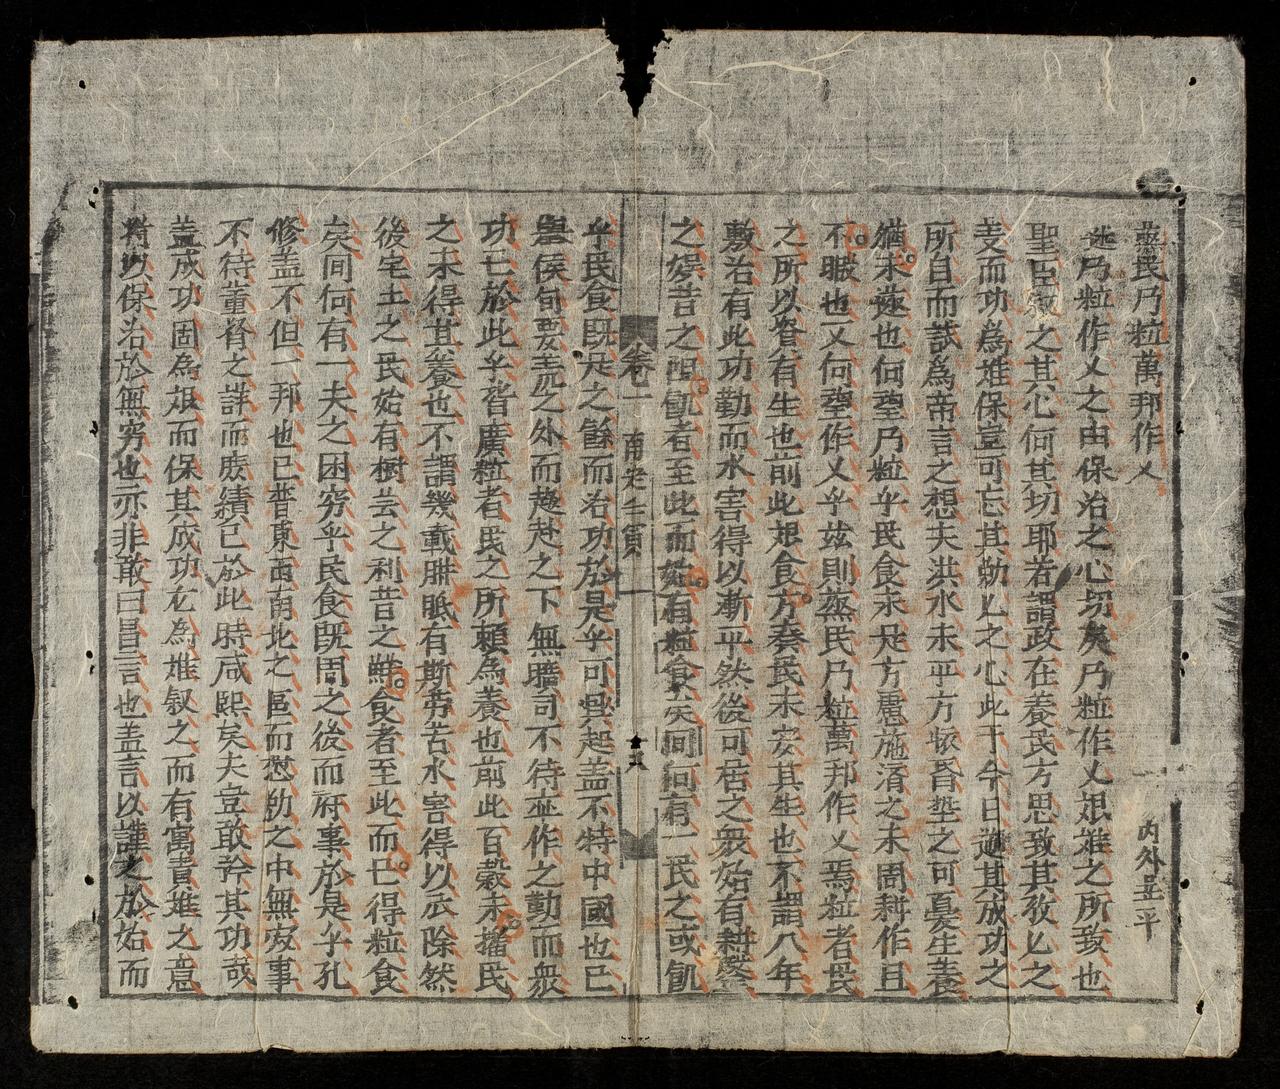 烝民乃粒萬邦作乂
內外並平
迹乃粒作乂之由保治之心切矣乃粒作乂艱難之所致也
聖臣敘之其心何其切耶若謂政在養民方思致其孜孜之
斐而功為難保豈可忘其勤孜之心此于今日遡其成功之
所自而試為帝言之想夫洪水未平方恢昏墊之可憂生養
猶未遂也何望乃粒乎民食未足方慮施濟之未周耕作且
不暇也又何望作乂乎玆則蒸民乃粒萬邦作乂焉粒者民
之所以資有生也前此艱食方奏民未安其生也不謂八年
敷治有此功勤而水害得以漸平然後可居之眾始有耕鑿
之娛昔之阻飢者至此而始有粒食矣間何有一民之或飢
卷一 南定壬寅 一
乎民食旣足之餘而治功於是乎可興起盖不特中國也已
粵侯甸要荒之外而趨赴之下無曠司不待並作之勤而眾
功已於此乎皆廣粒者民之所賴為養也前此百穀未播民
之未得其養也不謂幾載胼胝有斯勞苦水害得以瓜除然
後宅土之民始有樹芸之利昔之鮮食者至此而已得粒食
矣間何有一夫之困窮乎民食旣周之後而府事於是乎孔
修盖不但一邦也已普東西南北之區而懋勑之中無或事
不待董脊之詳而庶績已於此時咸熙矣夫豈敢矜其功哉
盖成功固為艱而保其成功尤為難叙之而有寓責難之意
將以保治於無窮也亦非敢曰昌言也盖言以謹之於始而